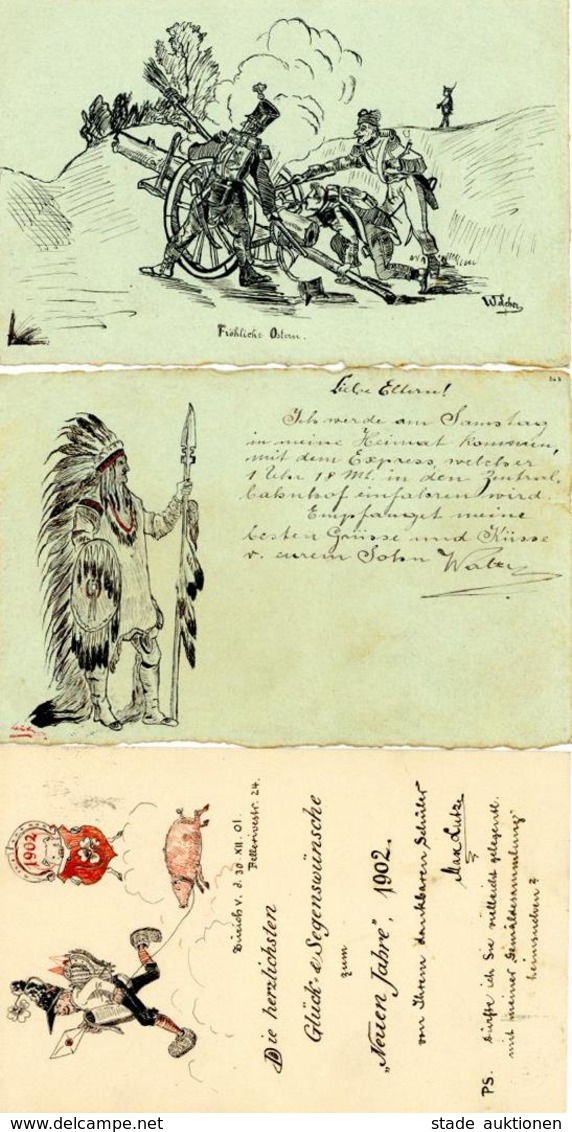 Fröhliche Ostern.
Liebe Eltern!
Ich werde am Samstag
in meine Heimat kommen,
mit dem Express, welcher
1 Uhr 18 Mt. in den Zentral-
bahnhof einfahren wird.
Empfanget meine
besten Grüsse und Küsse
v. eurem Sohn Walter
1902
Zürich V. d. 30 XII. 01.
Bellerivestr. 24.
Die herzlichsten
Glück- & Segenswünsche
zum
„Neuen Jahre", 1902.
von Ihrem dankbaren Schüler
Max Lutze
PS. Dürfte ich Sie vielleicht gelegentl.
mit meiner Gemäldesammlung
heimsuchen?
stade auktionen